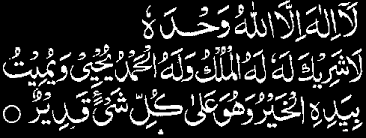 لَآ اِلٰهَ اِلَّا اللّٰهُ وَحْدَهٗ
لَا شَرِيْكَ لَهٗ لَهُ الْمُلْكُ وَلَهُ الْحَمْدُ يُحْيٖ وَيُمِيْتُ
بِيَدِهِ الْخَيْرُ وَهُوَ عَلٰى كُلِّ شَیْءٍ قَدِيْرٌ ○